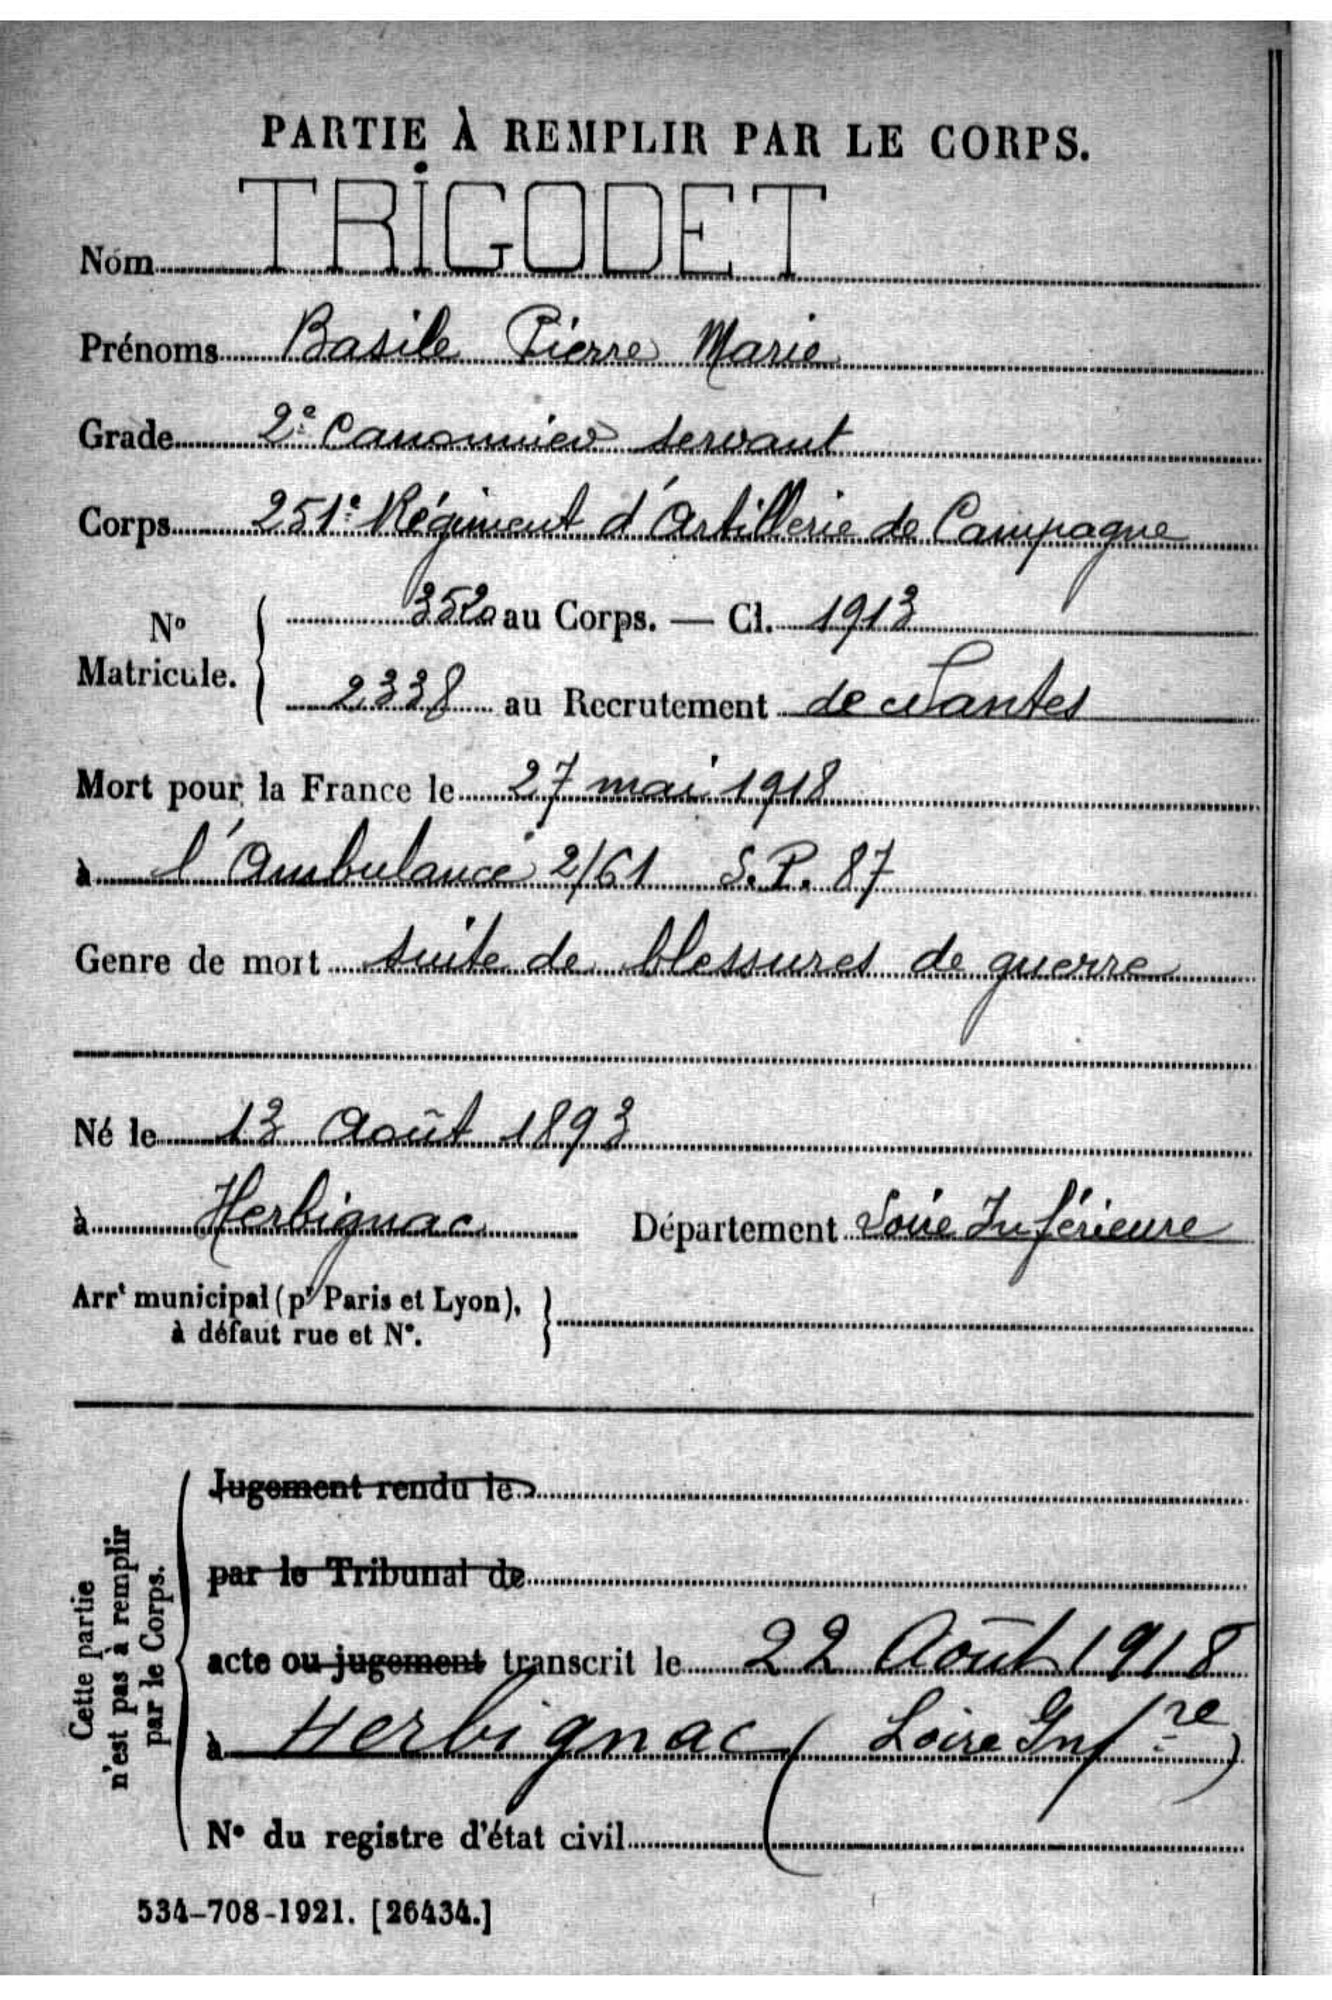 PARTIE À REMPLIR PAR LE CORPS.
Nom TRIGODET
Prénoms Basile Pierre Marie
Grade 2e Canonnier servant
Corps 251e Régiment d'Artillerie de Campagne
No Matricule. { 3520 au Corps. — Cl. 1913
2338 au Recrutement de Nantes
Mort pour la France le 27 mai 1918
à l'Ambulance 2/61 S.P. 87
Genre de mort suite de blessures de guerre
Né le 13 Août 1893
à Herbignac Département Loire Inférieure
Arrt municipal (pr Paris et Lyon),
à défaut rue et N°.
Cette partie
n'est pas à remplir
par le Corps.
Jugement rendu le
par le Tribunal de
acte ou jugement transcrit le 22 Août 1918
à Herbignac (Loire Infre)
N° du registre d'état civil
534-708-1921. [26434.]